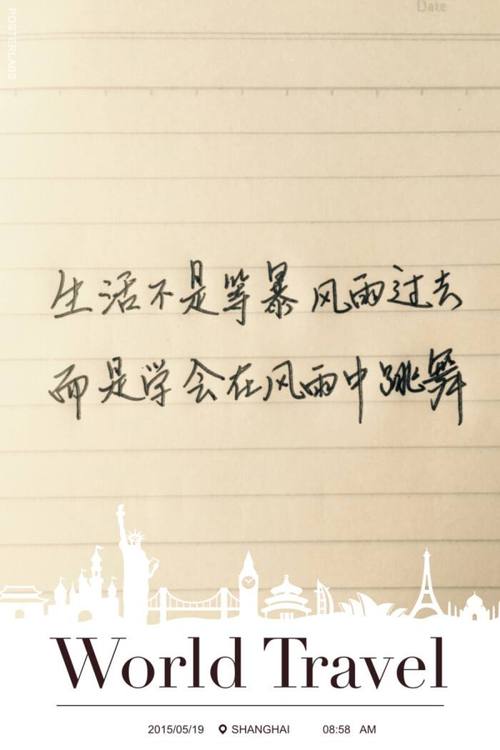 Date
POSTERLABS
生活不是等暴风雨过去
而是学会在风雨中跳舞
World Travel
2015/05/19 SHANGHAI 08:58 AM